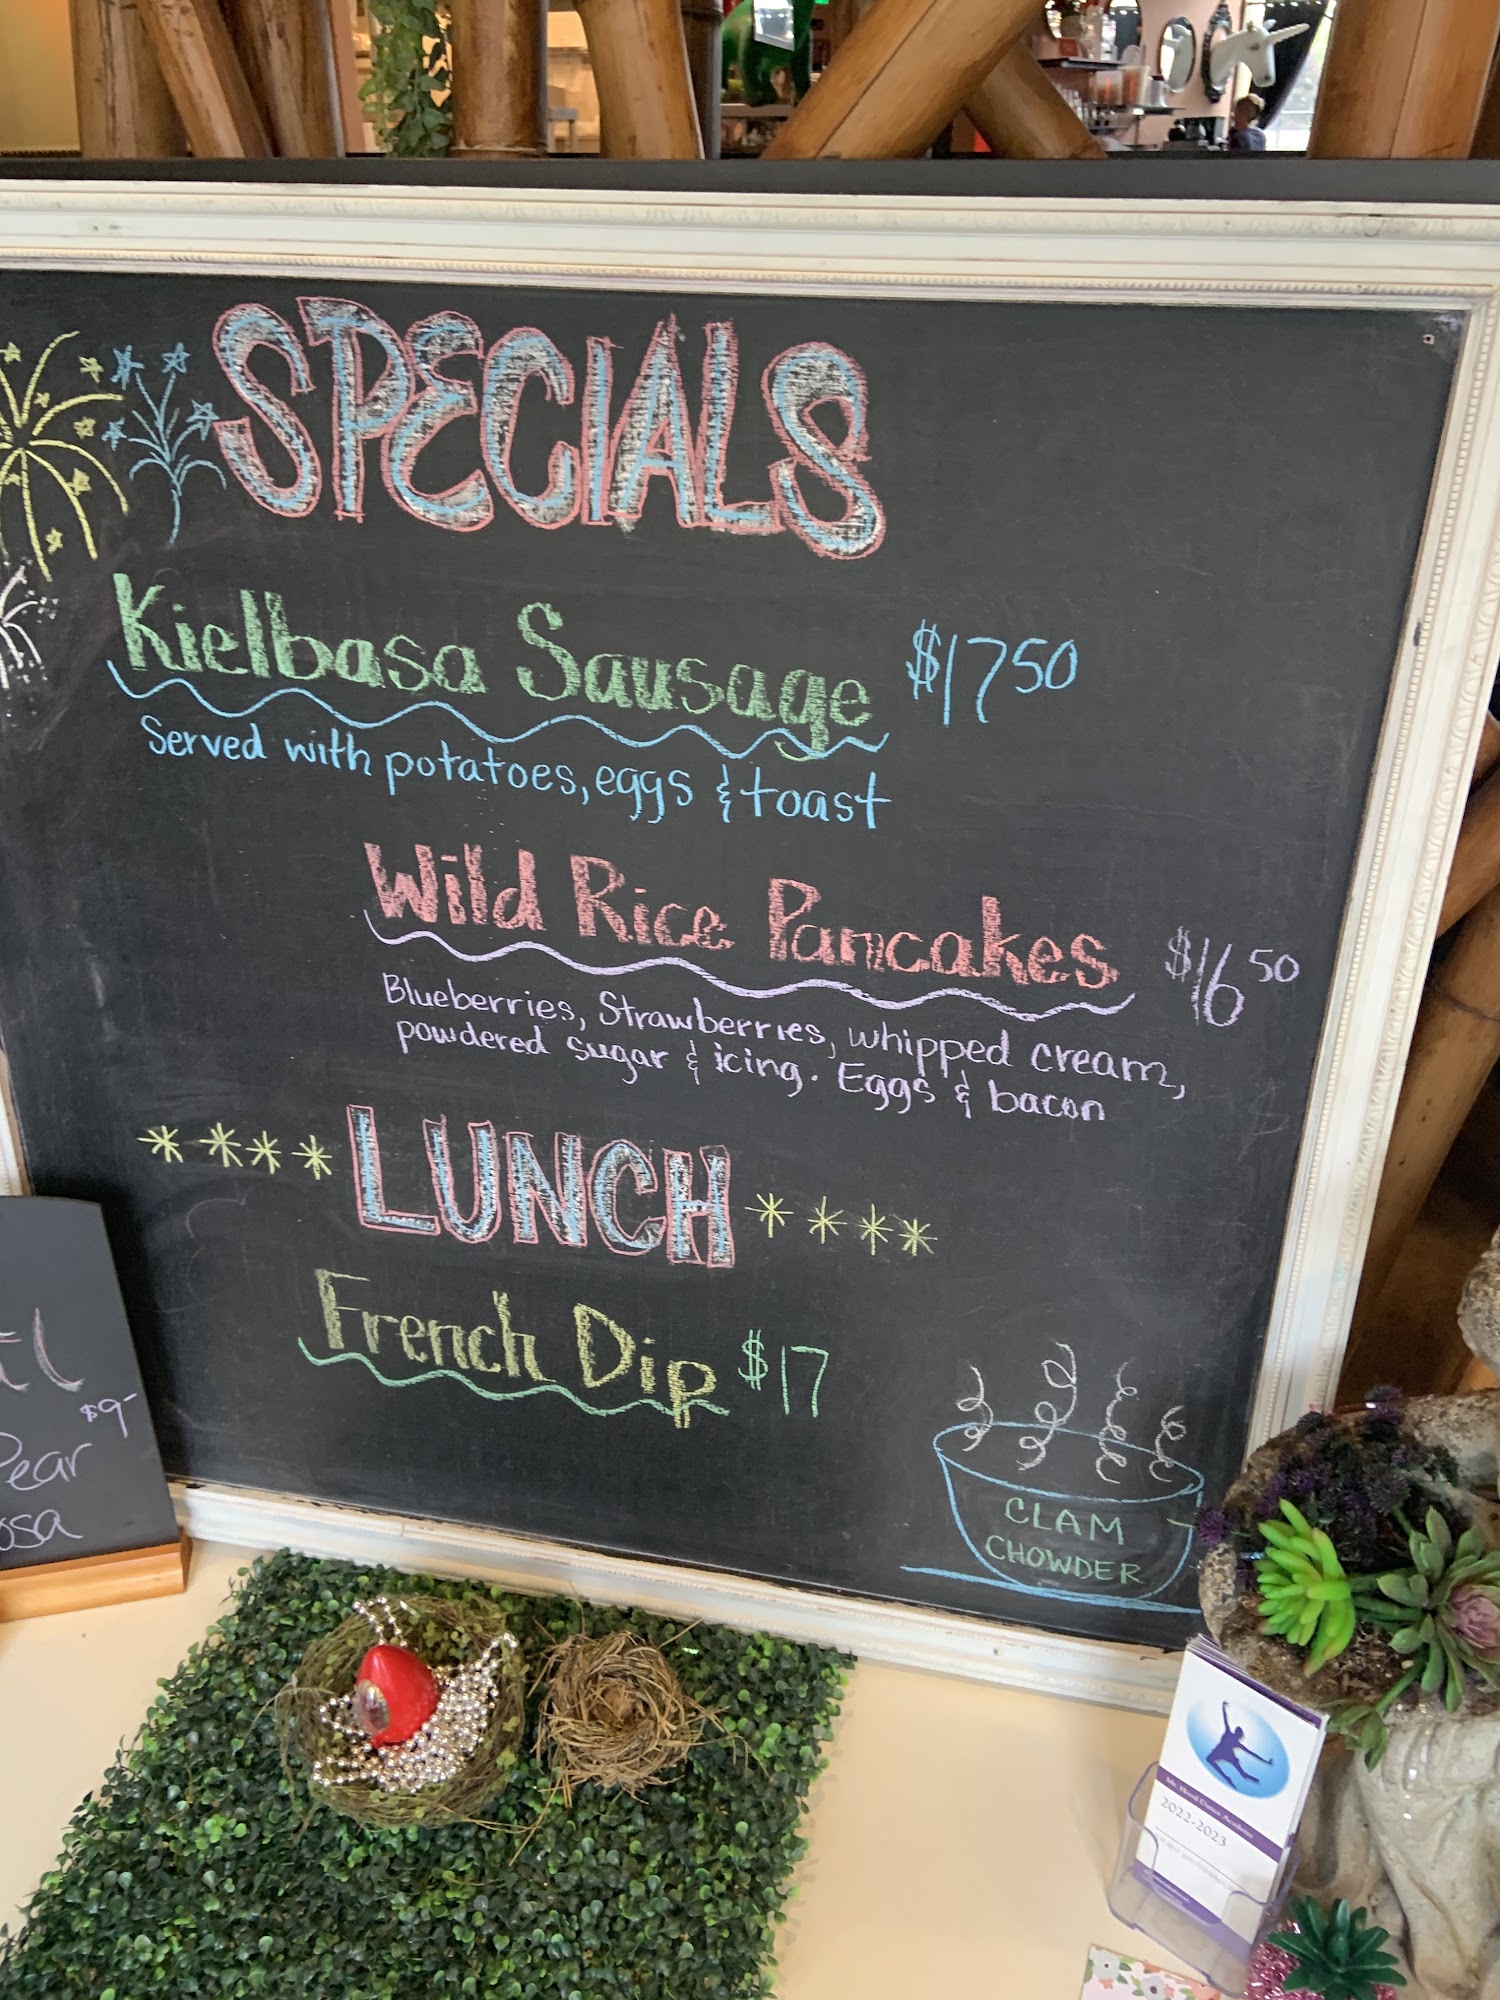 SPECIALS
Kielbasa Sausage $17 50
Served with potatoes, eggs & toast
Wild Rice Pancakes $16 50
Blueberries, Strawberries, whipped cream,
powdered sugar & icing. Eggs & bacon
**** LUNCH ****
French Dip $17
CLAM
CHOWDER
$9-
Pear
Mt. Hood Dance Academy
2022-2023